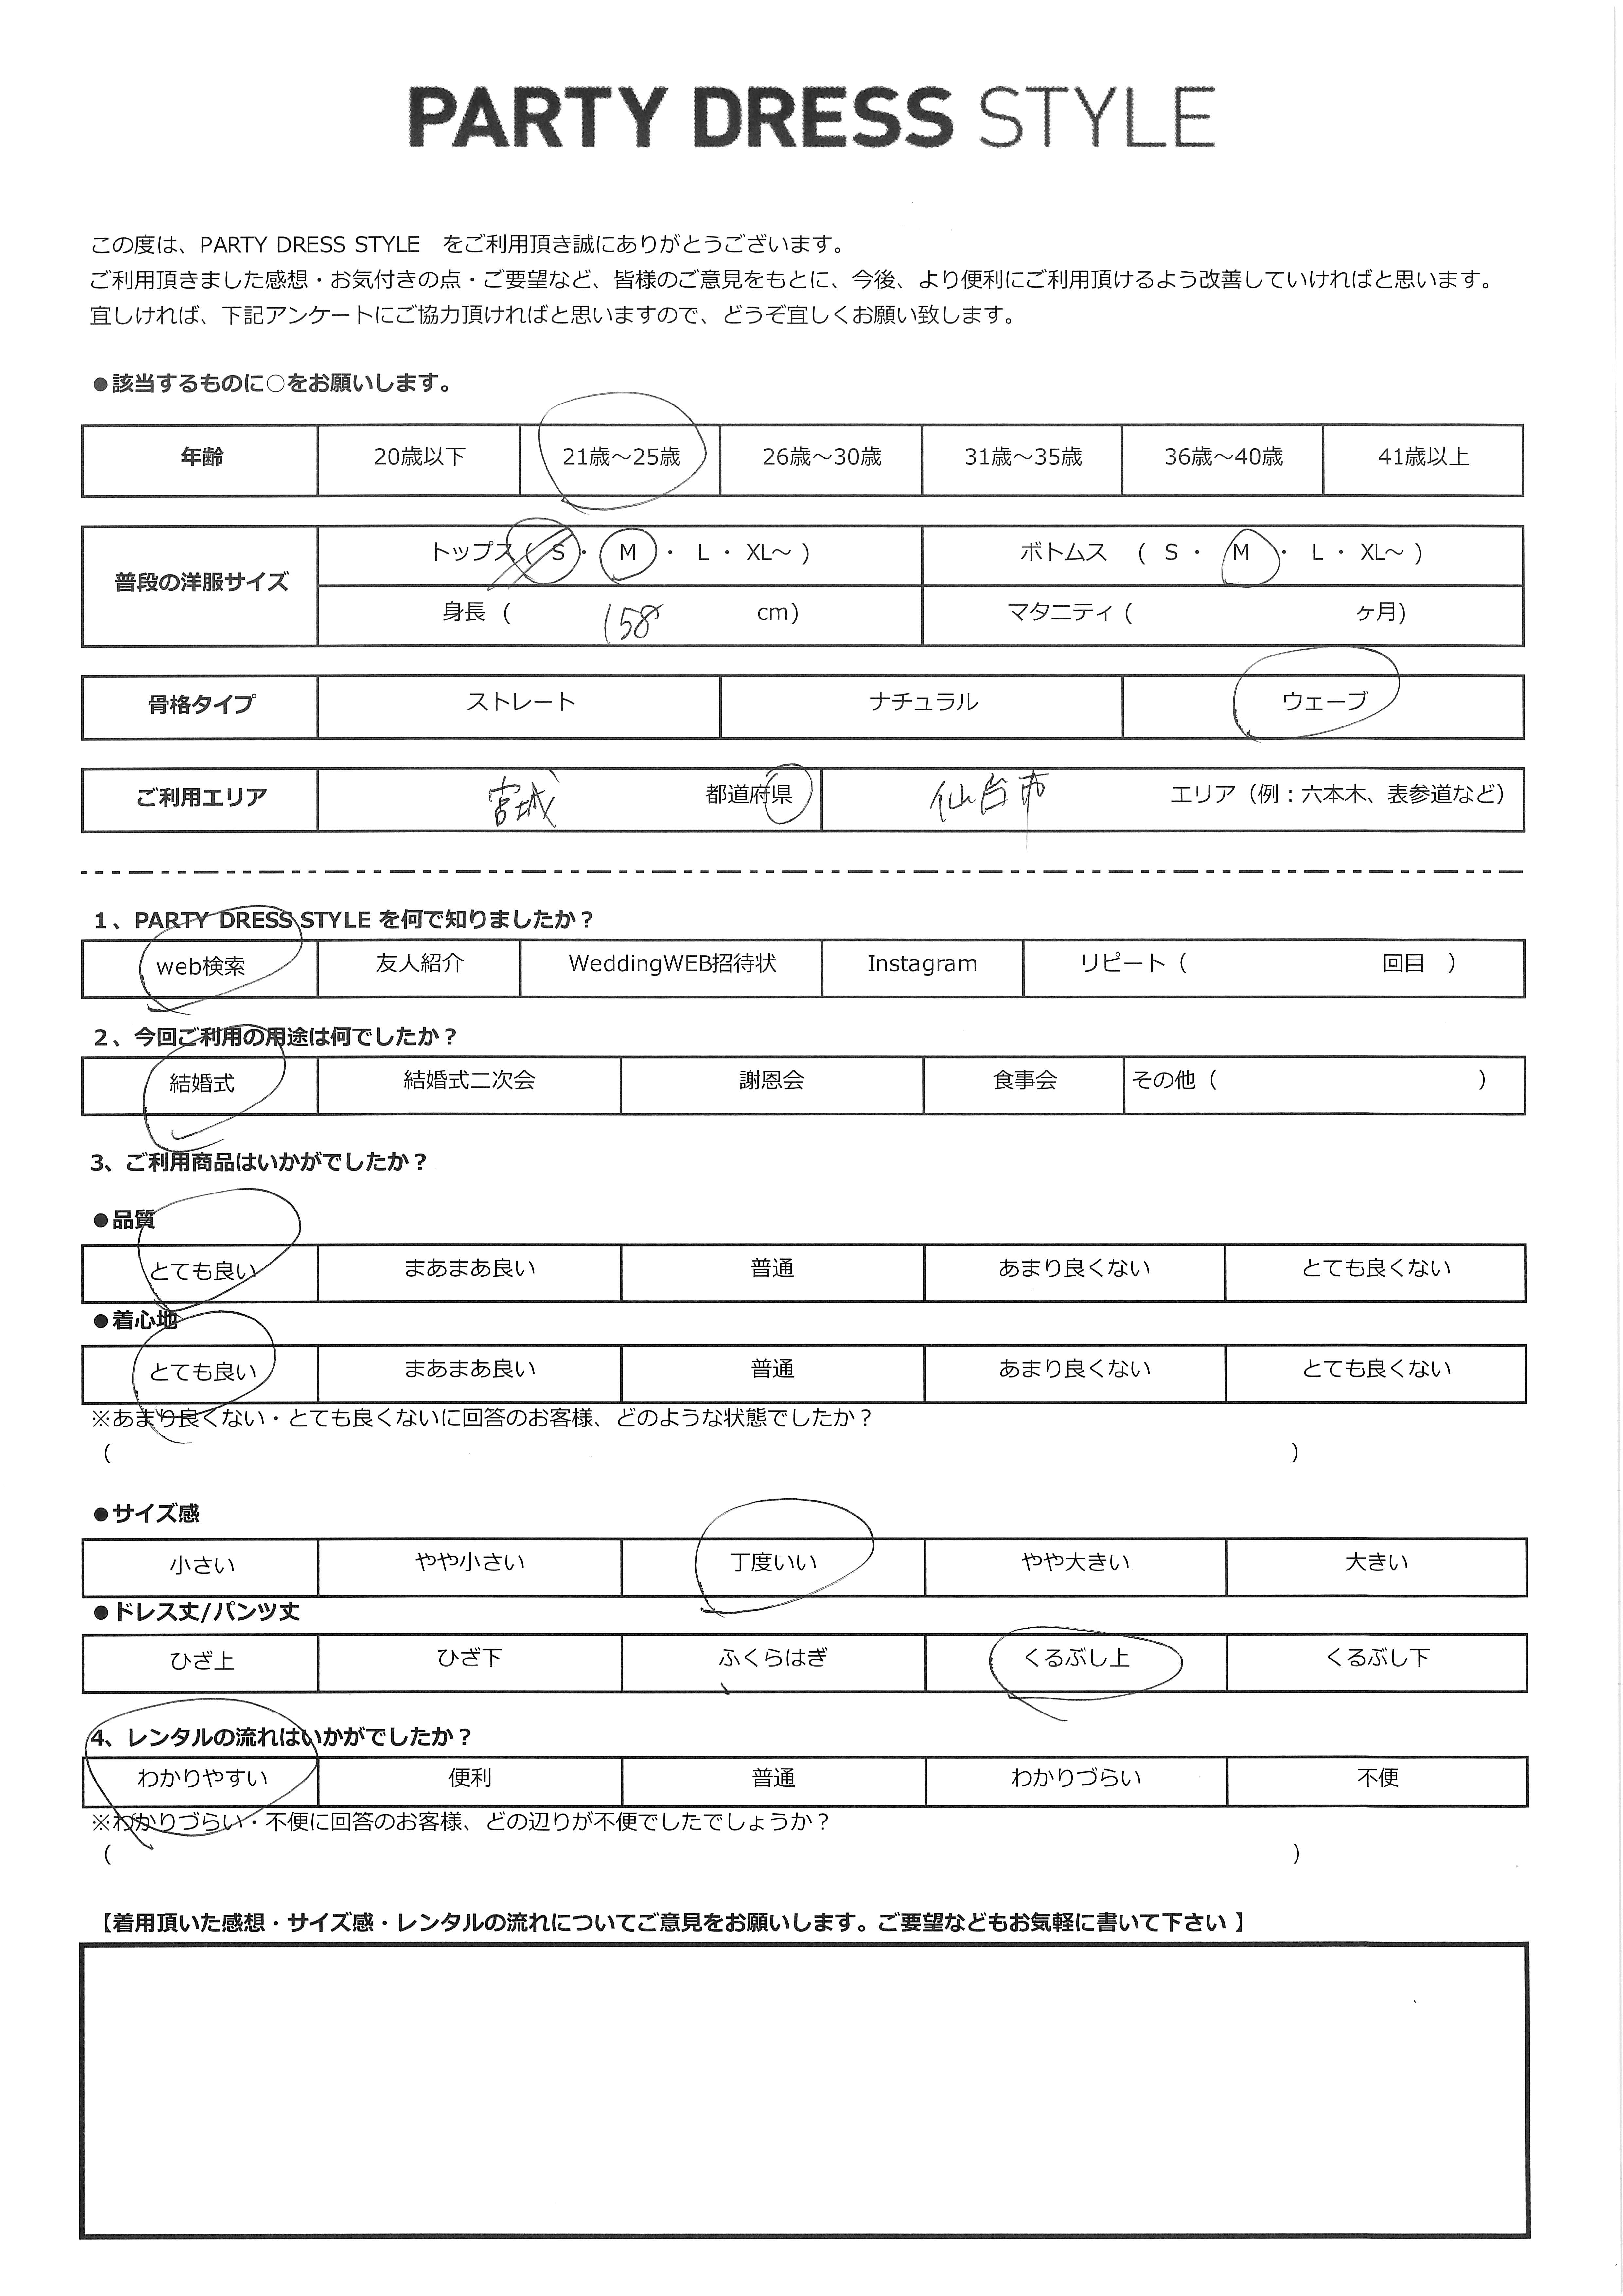 PARTY DRESS STYLE
この度は、PARTY DRESS STYLE　をご利用頂き誠にありがとうございます。
ご利用頂きました感想・お気付きの点・ご要望など、皆様のご意見をもとに、今後、より便利にご利用頂けるよう改善していければと思います。
宜しければ、下記アンケートにご協力頂ければと思いますので、どうぞ宜しくお願い致します。
●該当するものに○をお願いします。
年齢 20歳以下 21歳～25歳 26歳～30歳 31歳～35歳 36歳～40歳 41歳以上
普段の洋服サイズ
トップス ( S ・ M ・ L ・ XL～ ) ボトムス ( S ・ M ・ L ・ XL～ )
身長 ( 158 cm) マタニティ ( ヶ月)
骨格タイプ ストレート ナチュラル ウェーブ
ご利用エリア 宮城 都道府県 仙台市 エリア（例：六本木、表参道など）
1、PARTY DRESS STYLE を何で知りましたか？
web検索 友人紹介 WeddingWEB招待状 Instagram リピート（ 回目 ）
2、今回ご利用の用途は何でしたか？
結婚式 結婚式二次会 謝恩会 食事会 その他（ ）
3、ご利用商品はいかがでしたか？
●品質
とても良い まあまあ良い 普通 あまり良くない とても良くない
●着心地
とても良い まあまあ良い 普通 あまり良くない とても良くない
※あまり良くない・とても良くないに回答のお客様、どのような状態でしたか？
（ ）
●サイズ感
小さい やや小さい 丁度いい やや大きい 大きい
●ドレス丈/パンツ丈
ひざ上 ひざ下 ふくらはぎ くるぶし上 くるぶし下
4、レンタルの流れはいかがでしたか？
わかりやすい 便利 普通 わかりづらい 不便
※わかりづらい・不便に回答のお客様、どの辺りが不便でしたでしょうか？
（ ）
【着用頂いた感想・サイズ感・レンタルの流れについてご意見をお願いします。ご要望などもお気軽に書いて下さい 】